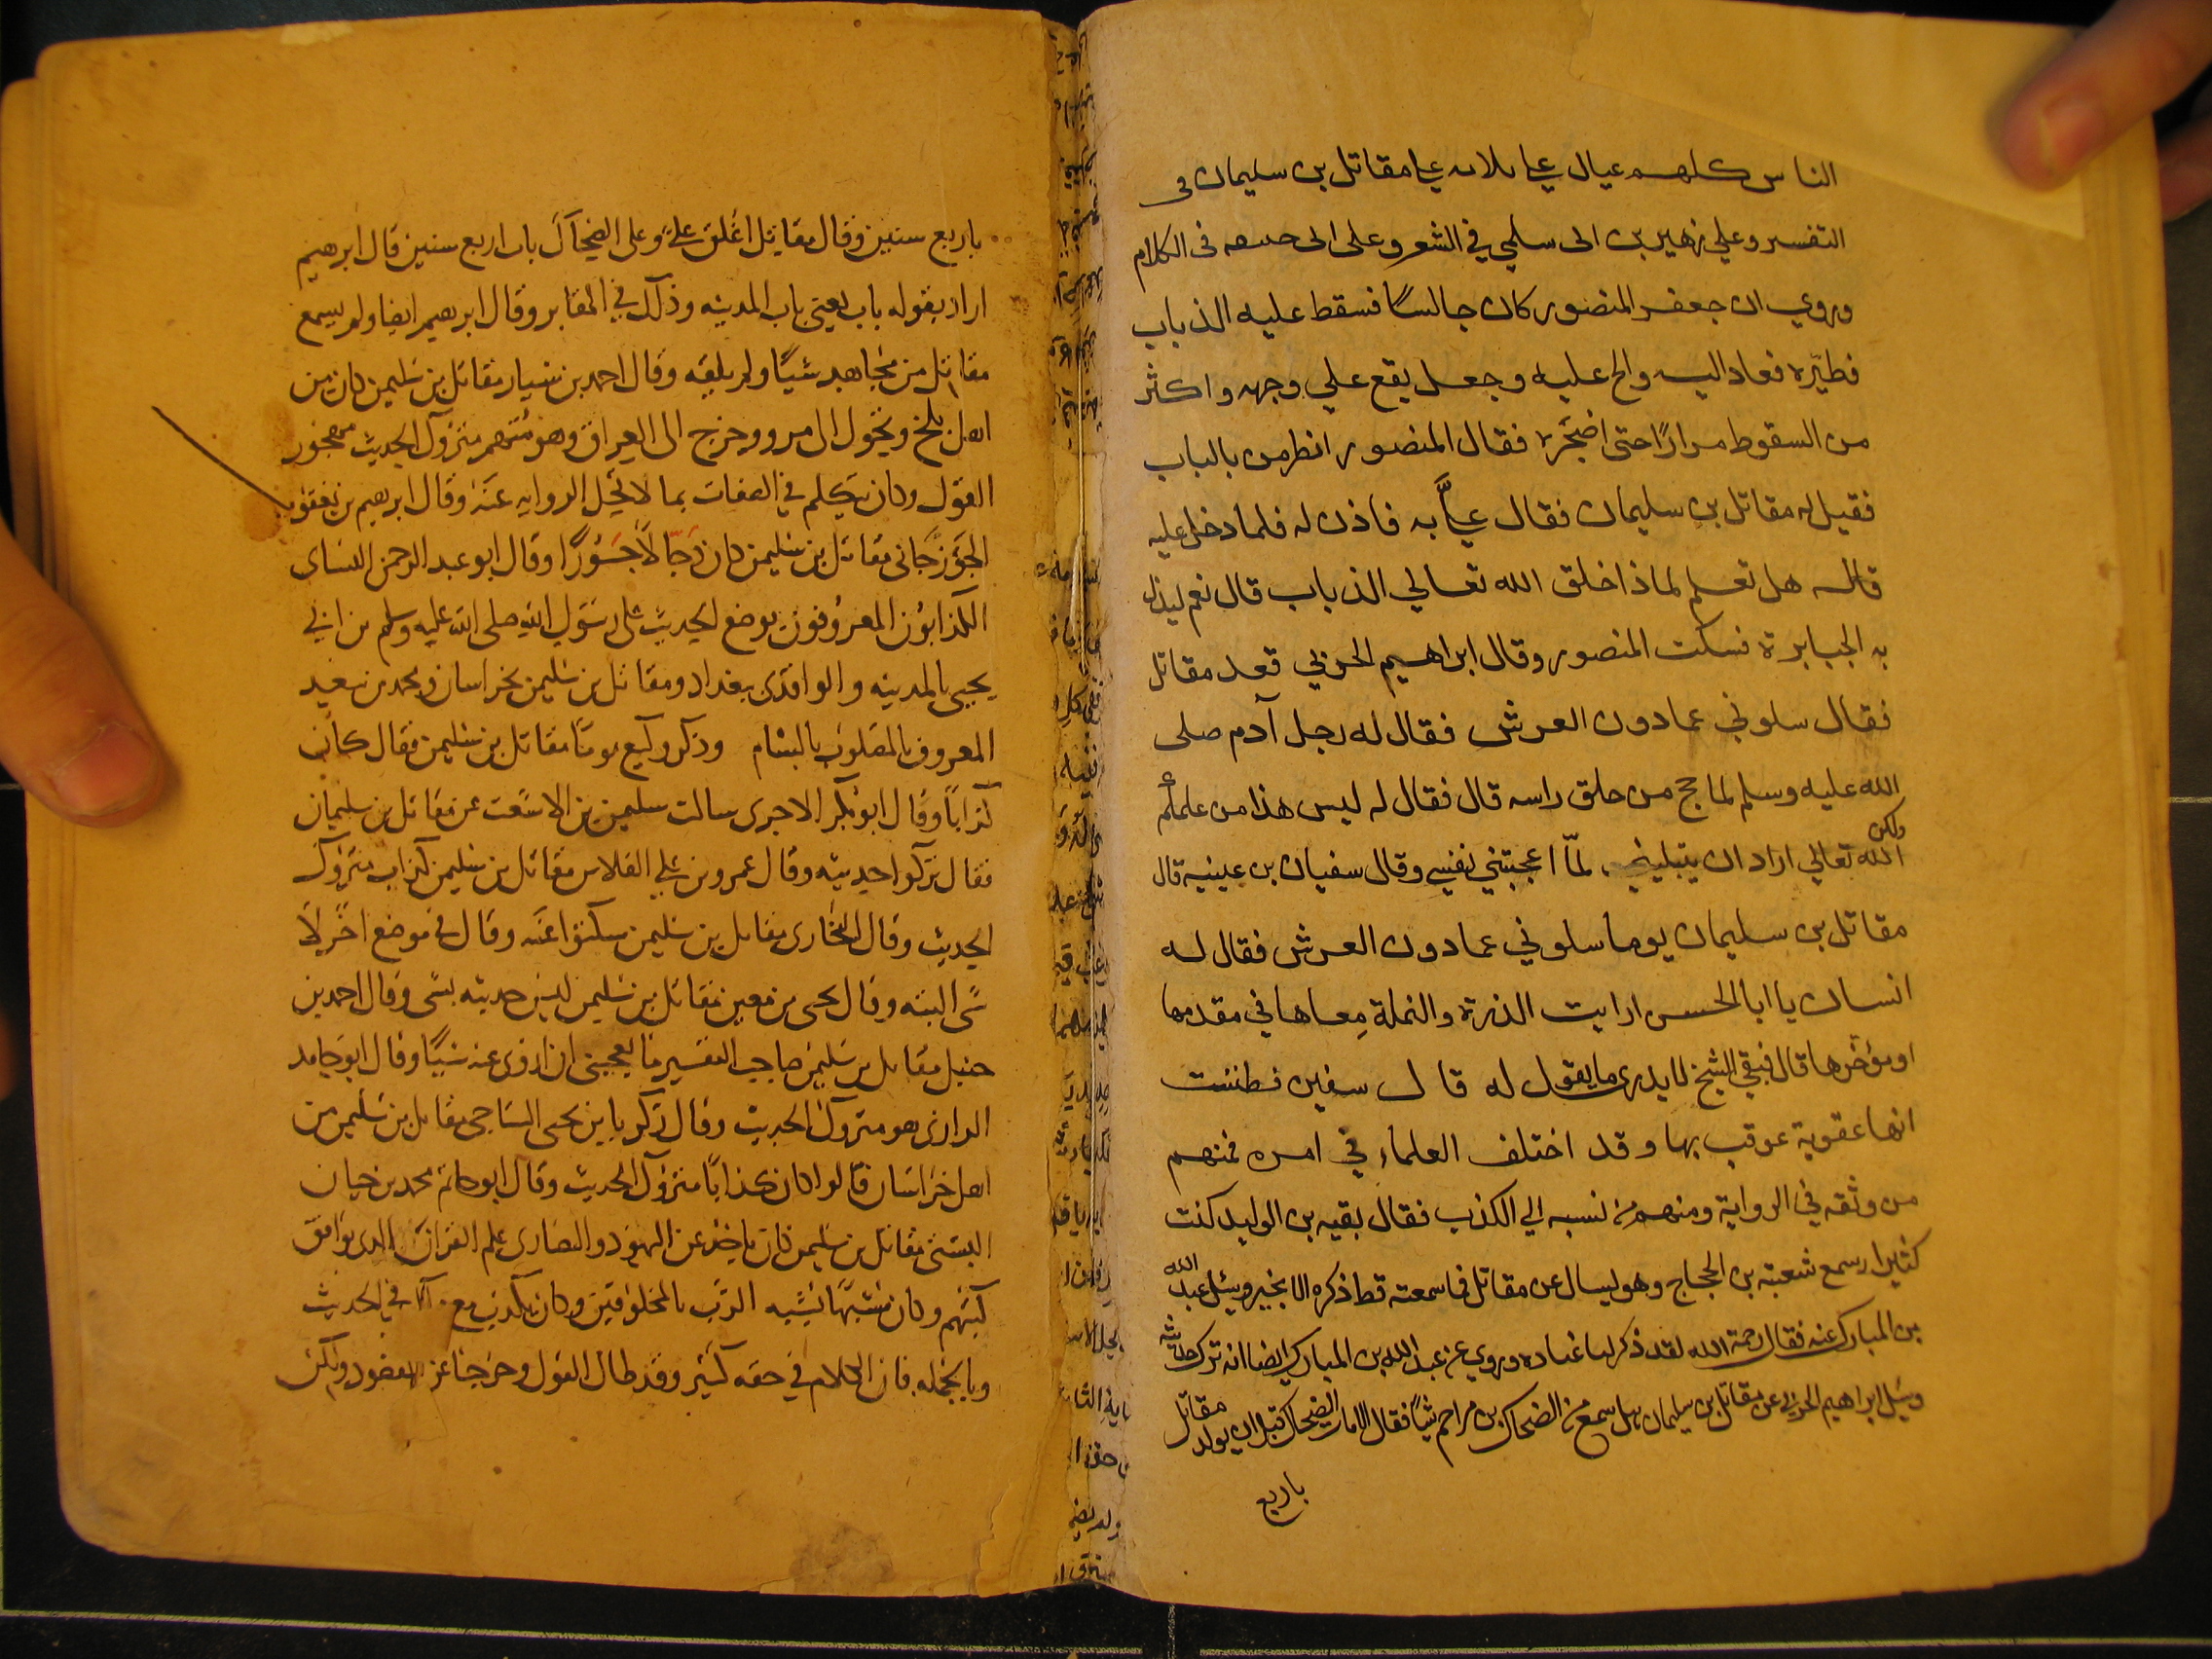 الناس كلهم عيال على ثلاثه على مقاتل بن سليمان فى
التفسير وعلي زهير بن ابى سلمي في الشعر وعلى ابى حنيفه فى الكلام
وروي ان جعفر المنصور كان جالسًا فسقط عليه الذباب
فطيّره فعاد اليه والح عليه وجعل يقع علي وجهه واكثر
من السقوط مرارًا حتى اضجره فقال المنصور انظر من بالباب
فقيل له مقاتل بن سليمان فقال عليَّ به فاذن له فلما دخل عليه
قال له هل تعلم لماذا خلق الله تعالي الذباب قال نعم ليذل
به الجبابرة فسكت المنصور وقال ابراهيم الحربي قعد مقاتل
فقال سلوني عمادون العرش فقال له رجل آدم صلى
الله عليه وسلم لما حج من حلق راسه قال فقال له ليس هذا من علمكم
ولكن
الله تعالي اراد ان يبتليني لمّا اعجبتني نفسي وقال سفيان بن عيينه قال
مقاتل بن سليمان يوما سلوني عمادون العرش فقال له
انسان يا ابا الحسن ارايت الذرة والنملة مِعاها في مقدمها
او مؤخّرها قال فبقي الشيخ لا يدرى ما يقول له قال سفين فظننت
انها عقوبة عوقب بها وقد اختلف العلماء في امره فمنهم
من وثقه في الرواية ومنهم من نسبه الي الكذب فقال بقيه بن الوليد كنت
كثيرا اسمع شعبته بن الحجاج وهو ليسال عن مقاتل فما سمعته قط ذكره الا بخير وسئل عبد الله
بن المبارك عنه فقال رحمة الله لقد ذكر لنا عباده وروي عن عبد الله بن المبارك ايضا انه ترك حديثه
وسئل ابراهيم الحربي عن مقاتل بن سليمان هل سمع من الضحاك بن مزاحم شيًا فقال لا مات الضحاك قبل ان يولد مقاتل
باربع
باربع سنين وقال مقاتل اغلق عليّ وعلى الضحاك باب اربع سنين قال ابرهيم
اراد بقوله باب يعني باب المدينه وذلك في المقابر وقال ابرهيم ايضا ولم يسمع
مقاتل من مجاهد شيًا ولم يلقه وقال احمد بن سيار مقاتل بن سليمن كان من
اهل بلخ وتحول الى مرو وخرج الى العراق وهو متهم متروك الحديث مهجور
القول وكان يتكلم في الصفات بما لا تحل الروايه عنه وقال ابرهيم بن يعقوب
الجوزجانى مقاتل بن سليمن كان دجّالًا جسورًا وقال ابو عبد الرحمن النساى
الكذابون المعروفون بوضع الحديث على رسول الله صلى الله عليه وسلم بن ابي
يحيى بالمدينه والواقدى ببغداد ومقاتل بن سليمن بخراسان ومحمد بن سعيد
المعروف بالمصلوب بالشام وذكر وكيع يومًا مقاتل بن سليمن فقال كان
كذاباً وقال ابوبكر الاجرى سالت سليمن بن الاشعث عن مقاتل بن سليمان
فقال تركوا حديثه وقال عمرو بن على الفلاس مقاتل بن سليمن كذاب متروك
الحديث وقال البخارى مقاتل بن سليمن سكتوا عنه وقال في موضع اخر لا
شى البته وقال يحيى بن معين مقاتل بن سليمن ليس حديثه بشى وقال احمد بن
حنبل مقاتل بن سليمن صاحب التفسير ما يعجبنى ان اروى عنه شيًا وقال ابو حامد
الرازى هو متروك الحديث وقال زكريا بن يحيى الساجى مقاتل بن سليمن من
اهل خراسان قالوا كان كذابًا متروك الحديث وقال ابو حاتم محمد بن حبان
البستى مقاتل بن سليمن كان ياخذ عن اليهود والنصارى علم القران الذى يوافق
كتبهم وكان مشبهًا يشبه الرب بالمخلوقين وكان يكذب مع في الحديث
وبالجمله فان الكلام في حقه كثير وقد طال القول وخرجنا عن المقصود ولكن